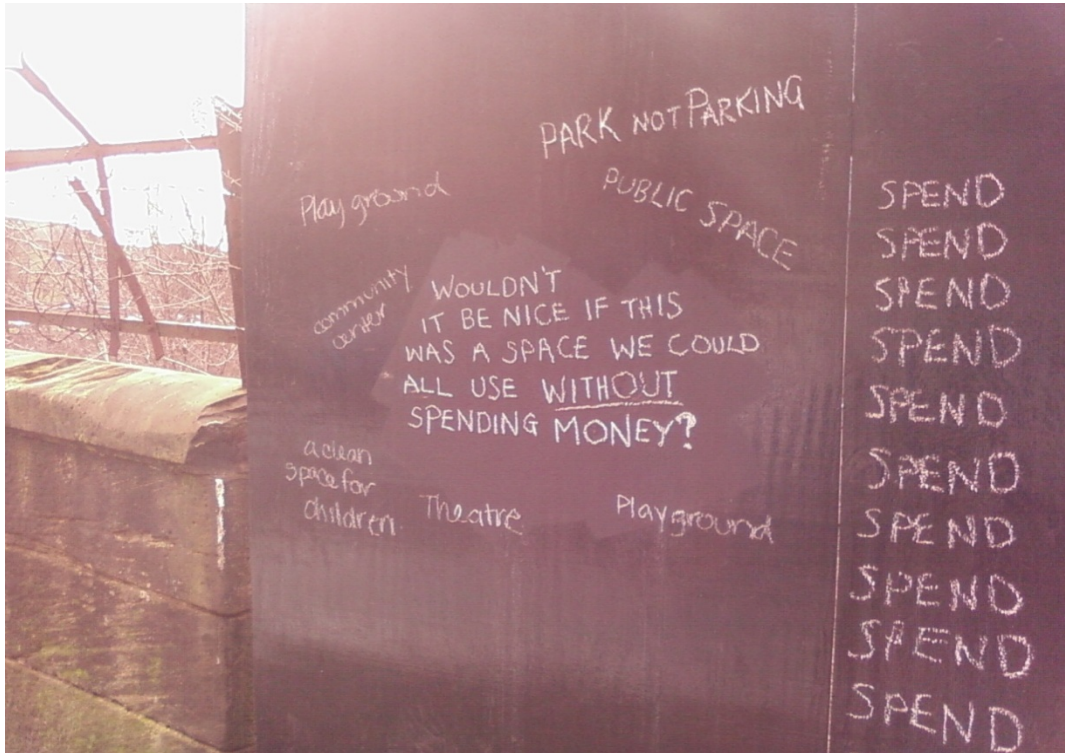 PARK NOT PARKING
PUBLIC SPACE
Playground
community
center
WOULDN'T
IT BE NICE IF THIS
WAS A SPACE WE COULD
ALL USE WITHOUT
SPENDING MONEY?
a clean
space for
children.
Theatre
Playground
SPEND
SPEND
SPEND
SPEND
SPEND
SPEND
SPEND
SPEND
SPEND
SPEND